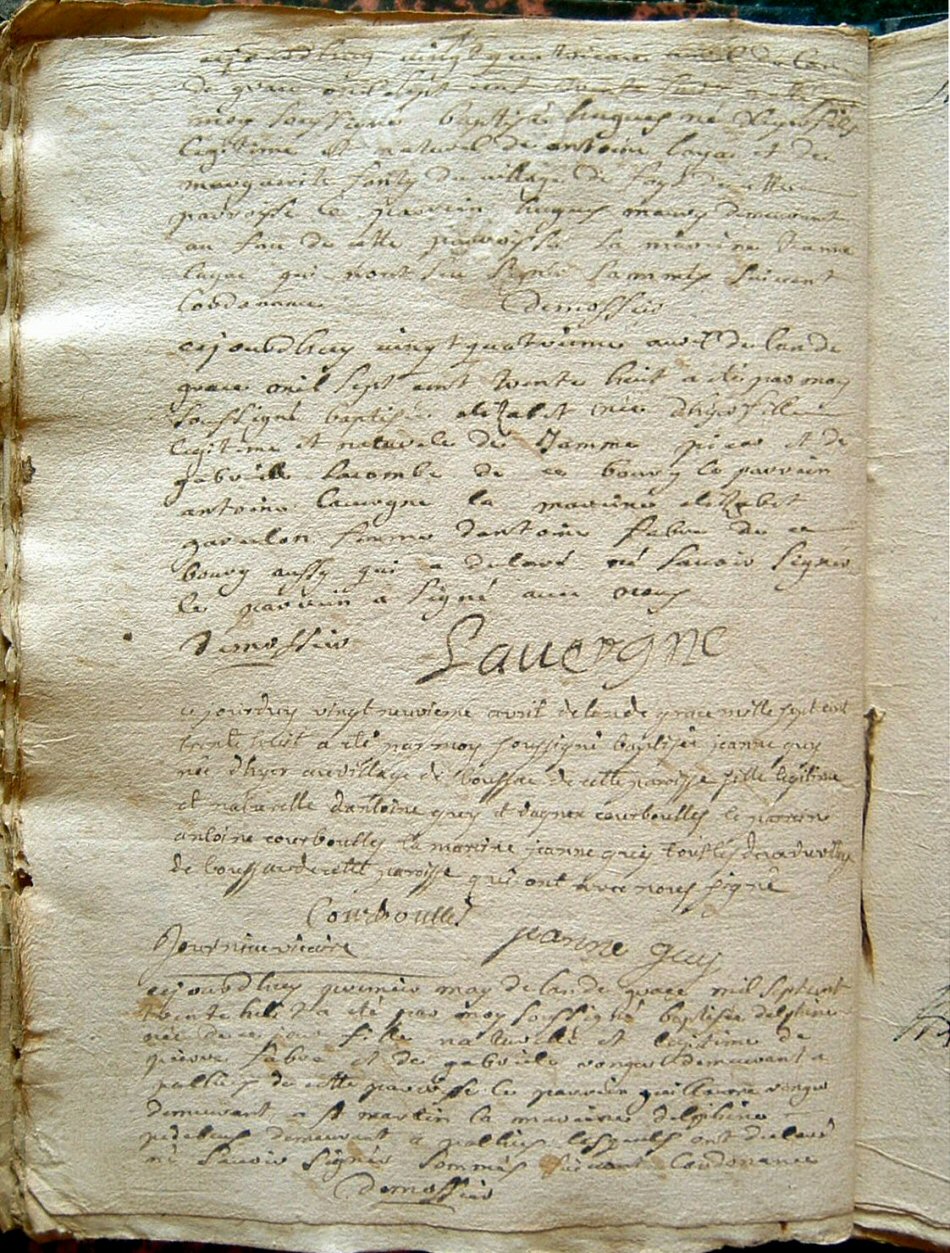 cejourdhuy vingtquatrieme avril de lan
de grace mil sept cent trente huit a été
moy soussigné baptisé hugues né dhyer fils
legitime et naturel de antoine layac et de
marguerite du village de de cette
parroisse le parrein hugues maury demeurant
au de cette parroisse la mareine Jeanne
layac qui nont seu signer sommés suivant
lordonnance demossier
cejourdhuy vingtquatrieme avril de lan de
grace mil sept cent trente huit a été par moy
soussigné baptisée elizabet née dhyer fille
legitime et naturele de Jamme et de
gabrielle lacombe de ce bourg le parrein
antoine lauvergne la mareine elizabet
femme dantoine fabre de ce
bourg aussy qui a declaré né savoir signer
le parrein a signé avec nous
demossier Lauvergne
cejourduy vingtneuvieme avril de lan de grace mille sept cent
trente huit a été par moy soussigné baptisée jeanne guy
née dhyer au village de boussac de cette paroisse fille legitime
et naturelle dantoine guy et dagnes courboulles le parrein
antoine courboulles la mareine jeanne guy tous les deux du village
de boussac de cette paroisse qui ont avec nous signé
Courboulles jeanne guy
Journiac vicaire
cejourdhuy premier may de lan de grace mil sept cent
trente huit a été par moy soussigné baptisée delphine
née de ce jour fille naturelle et legitime de
pierre fabre et de gabriele demeurant a
pallies de cette parroisse le parrein guillaume
demeurant a st martin la mareine delphine
demeurant a pallies lesquels ont declaré
né savoir signer sommés suivant lordonance
demossier